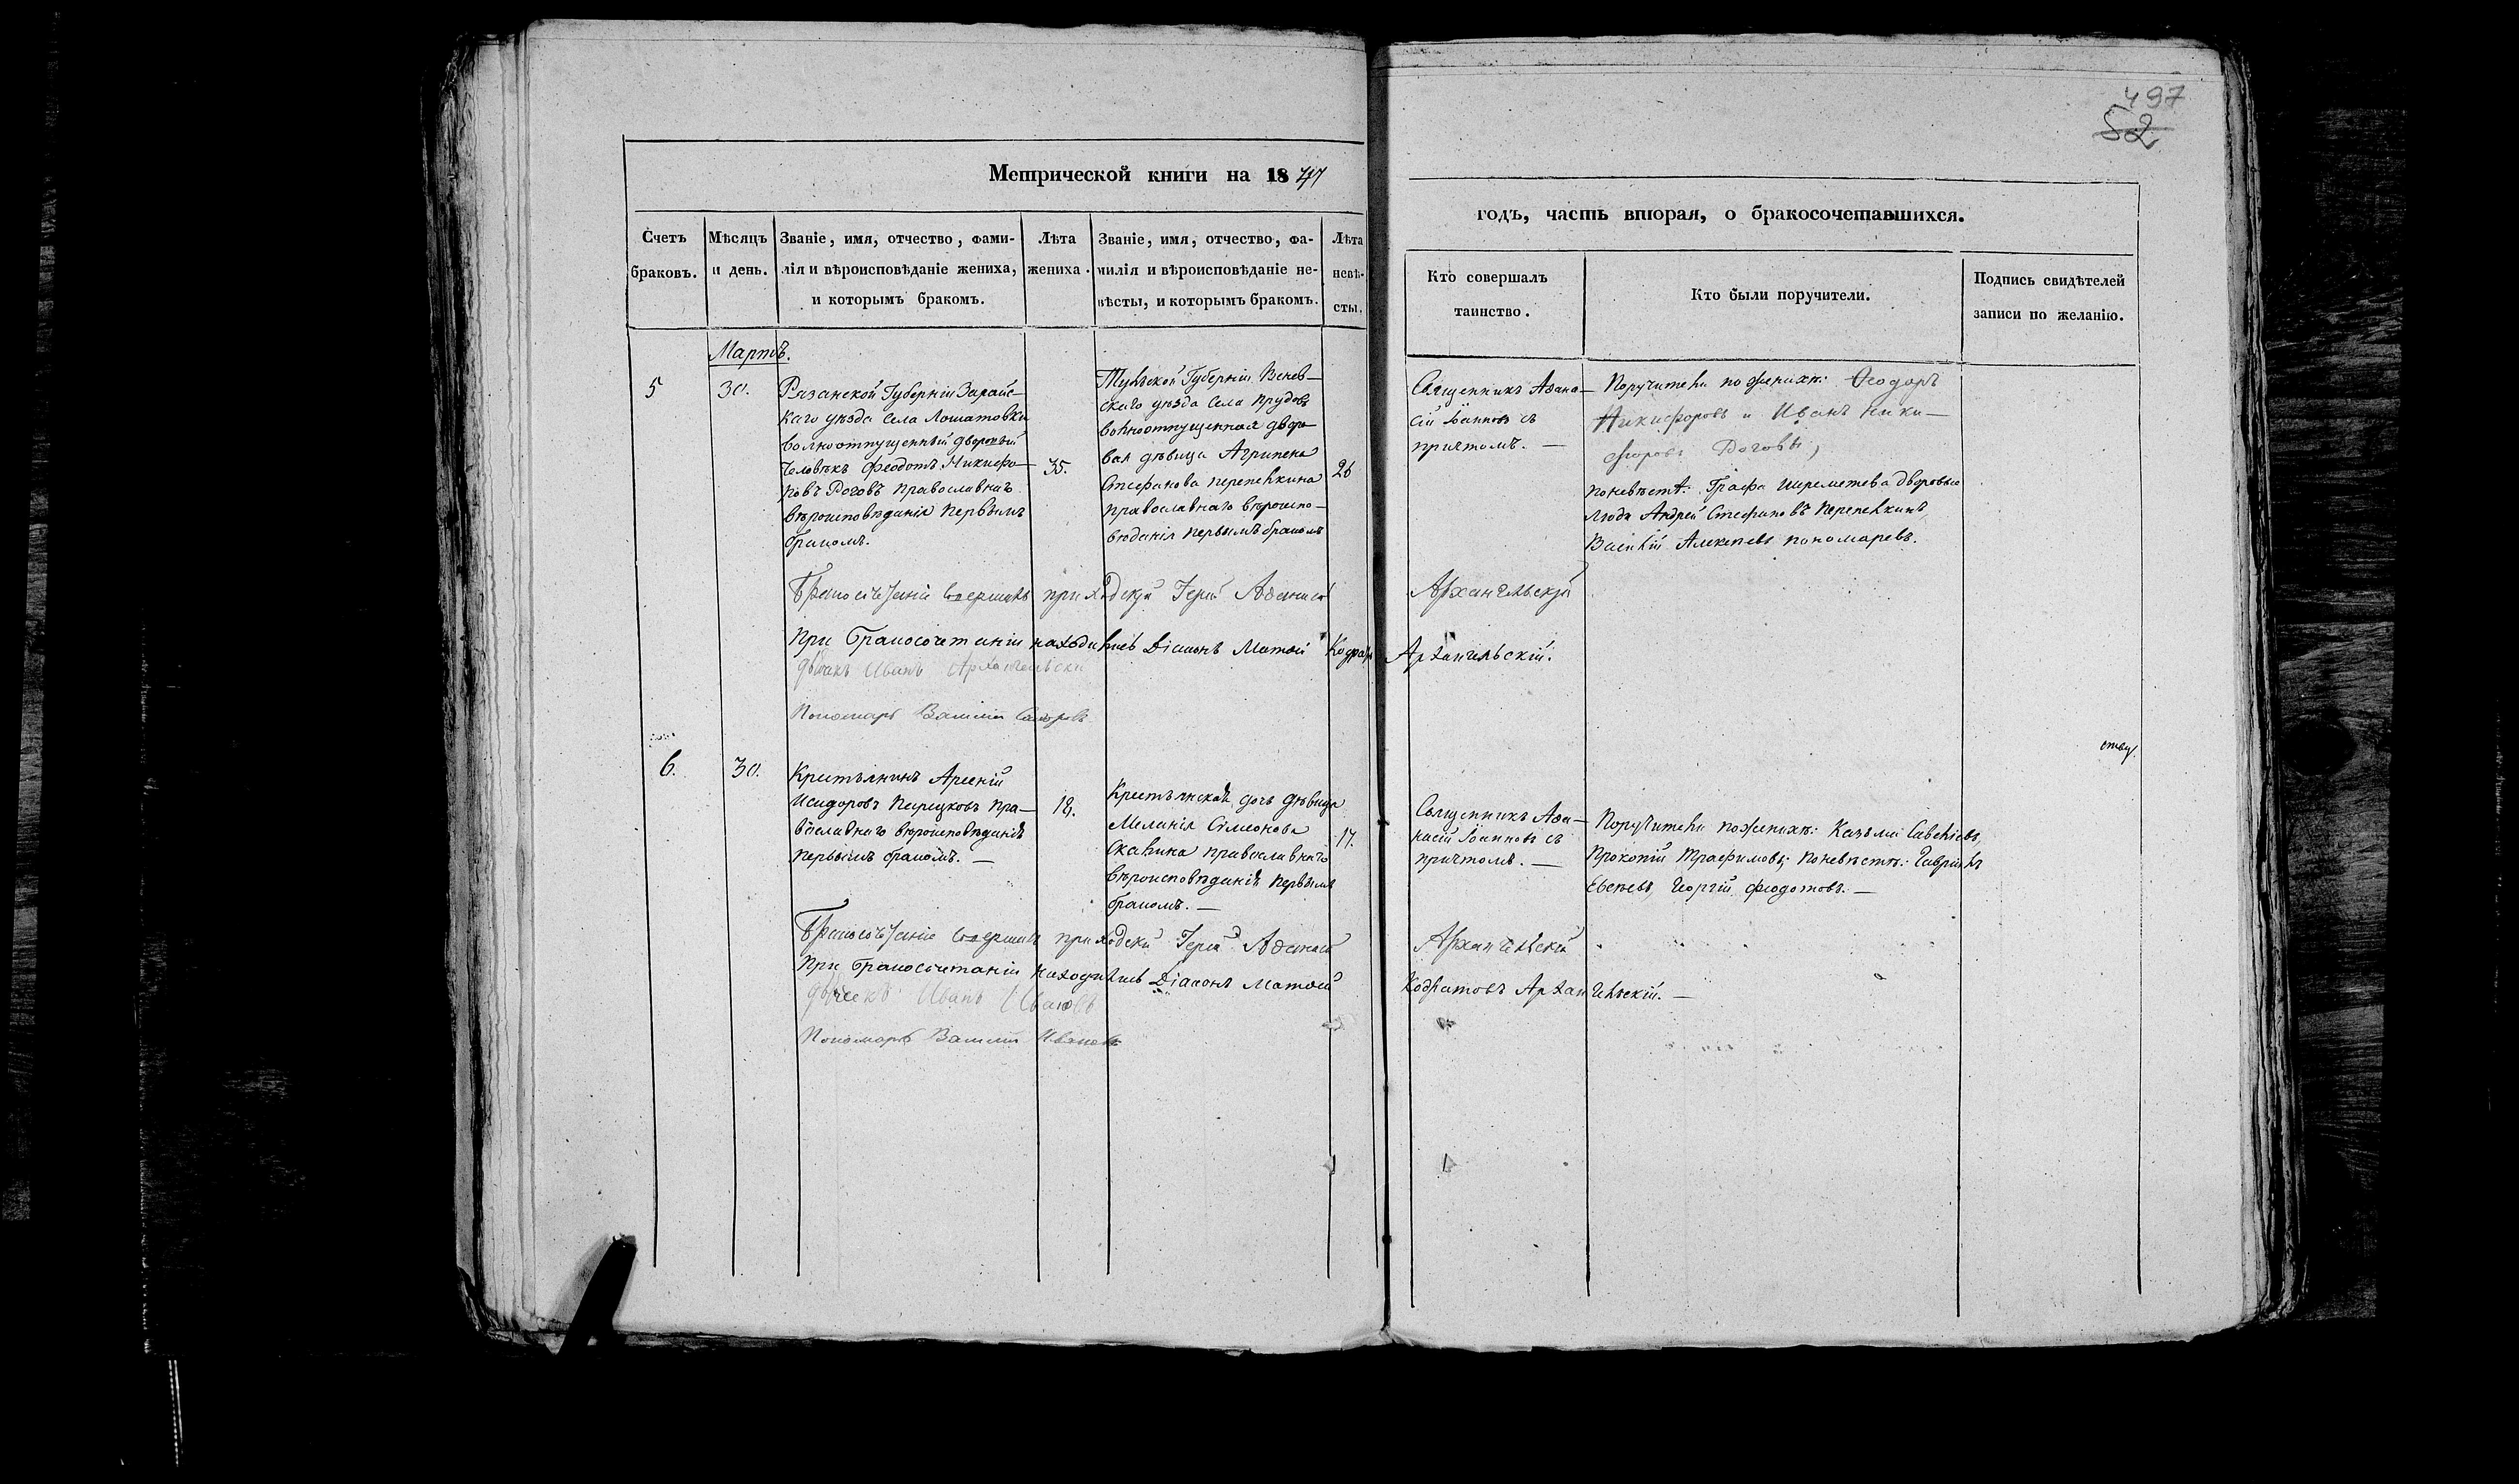 497
52
Метрической книги на 1847
годъ, часть вторая, о бракосочетавшихся.
Счетъ браковъ.
Мѣсяцъ и день.
Званіе, имя, отчество, фами-
лія и вѣроисповѣданіе жениха,
и которымъ бракомъ.
Лѣта жениха.
Званіе, имя, отчество, фа-
милія и вѣроисповѣданіе не-
вѣсты, и которымъ бракомъ.
Лѣта
невѣ-
сты.
Кто совершалъ
таинство.
Кто были поручители.
Подпись свидѣтелей
записи по желанію.
Мартъ.
5
30.
Рязанской Губерніи Зарайс-
каго уѣзда Села
вольноотпущенный дворовый
Человѣкъ Феодотъ Никифо-
ровъ Роговъ православнаго
вѣроисповѣданія первымъ
бракомъ.
35.
Тульской Губерніи Венев-
скаго уѣзда Села Прудовъ
вольноотпущенная дворо-
вая дѣвица Агрипена
Стефанова Перепелкина
православнаго вѣроиспо-
вѣданія первымъ бракомъ
26
Священникъ Аѳана-
сій Іоанновъ съ
причтомъ. —
Поручители по женихѣ: Ѳеодоръ
Никифоровъ и Иванъ Ники-
форовъ Роговы,
по невѣстѣ: Графа Шереметева дворовые
люди Андрей Стефановъ Перепелкинъ,
Василій Алексѣевъ Пономаревъ.
Бракосочетаніе совершалъ приходскій Іерей Аѳанасій Архангельскій
При бракосочетаніи находились Діаконъ Матѳій Кодрат Архангельскій.
дьячекъ Иванъ Архангельскій
Пономарь Василій
6.
30.
Крестьянинъ Арсеній
Исидоровъ пра-
вославнаго вѣроисповѣданія
первымъ бракомъ. —
18.
Крестьянская дочь дѣвица
Меланія Симеонова
Скалкина православнаго
вѣроисповѣданія первымъ
бракомъ. —
17.
Священникъ Аѳа-
насій Іоанновъ съ
причтомъ. —
Поручители по женихѣ: Козьма Савельевъ,
Прокопій Трафимовъ; по невѣстѣ: Гавріилъ
Евсѣевъ, Георгій Феодотовъ. —
ству.
Бракосочетаніе совершалъ приходскій Іерей Аѳанасій Архангельскій
При бракосочетаніи находились Діаконъ Матѳій Кодратовъ Архангельскій. —
дьячекъ Иванъ Ивановъ
Пономарь Василій Ивановъ